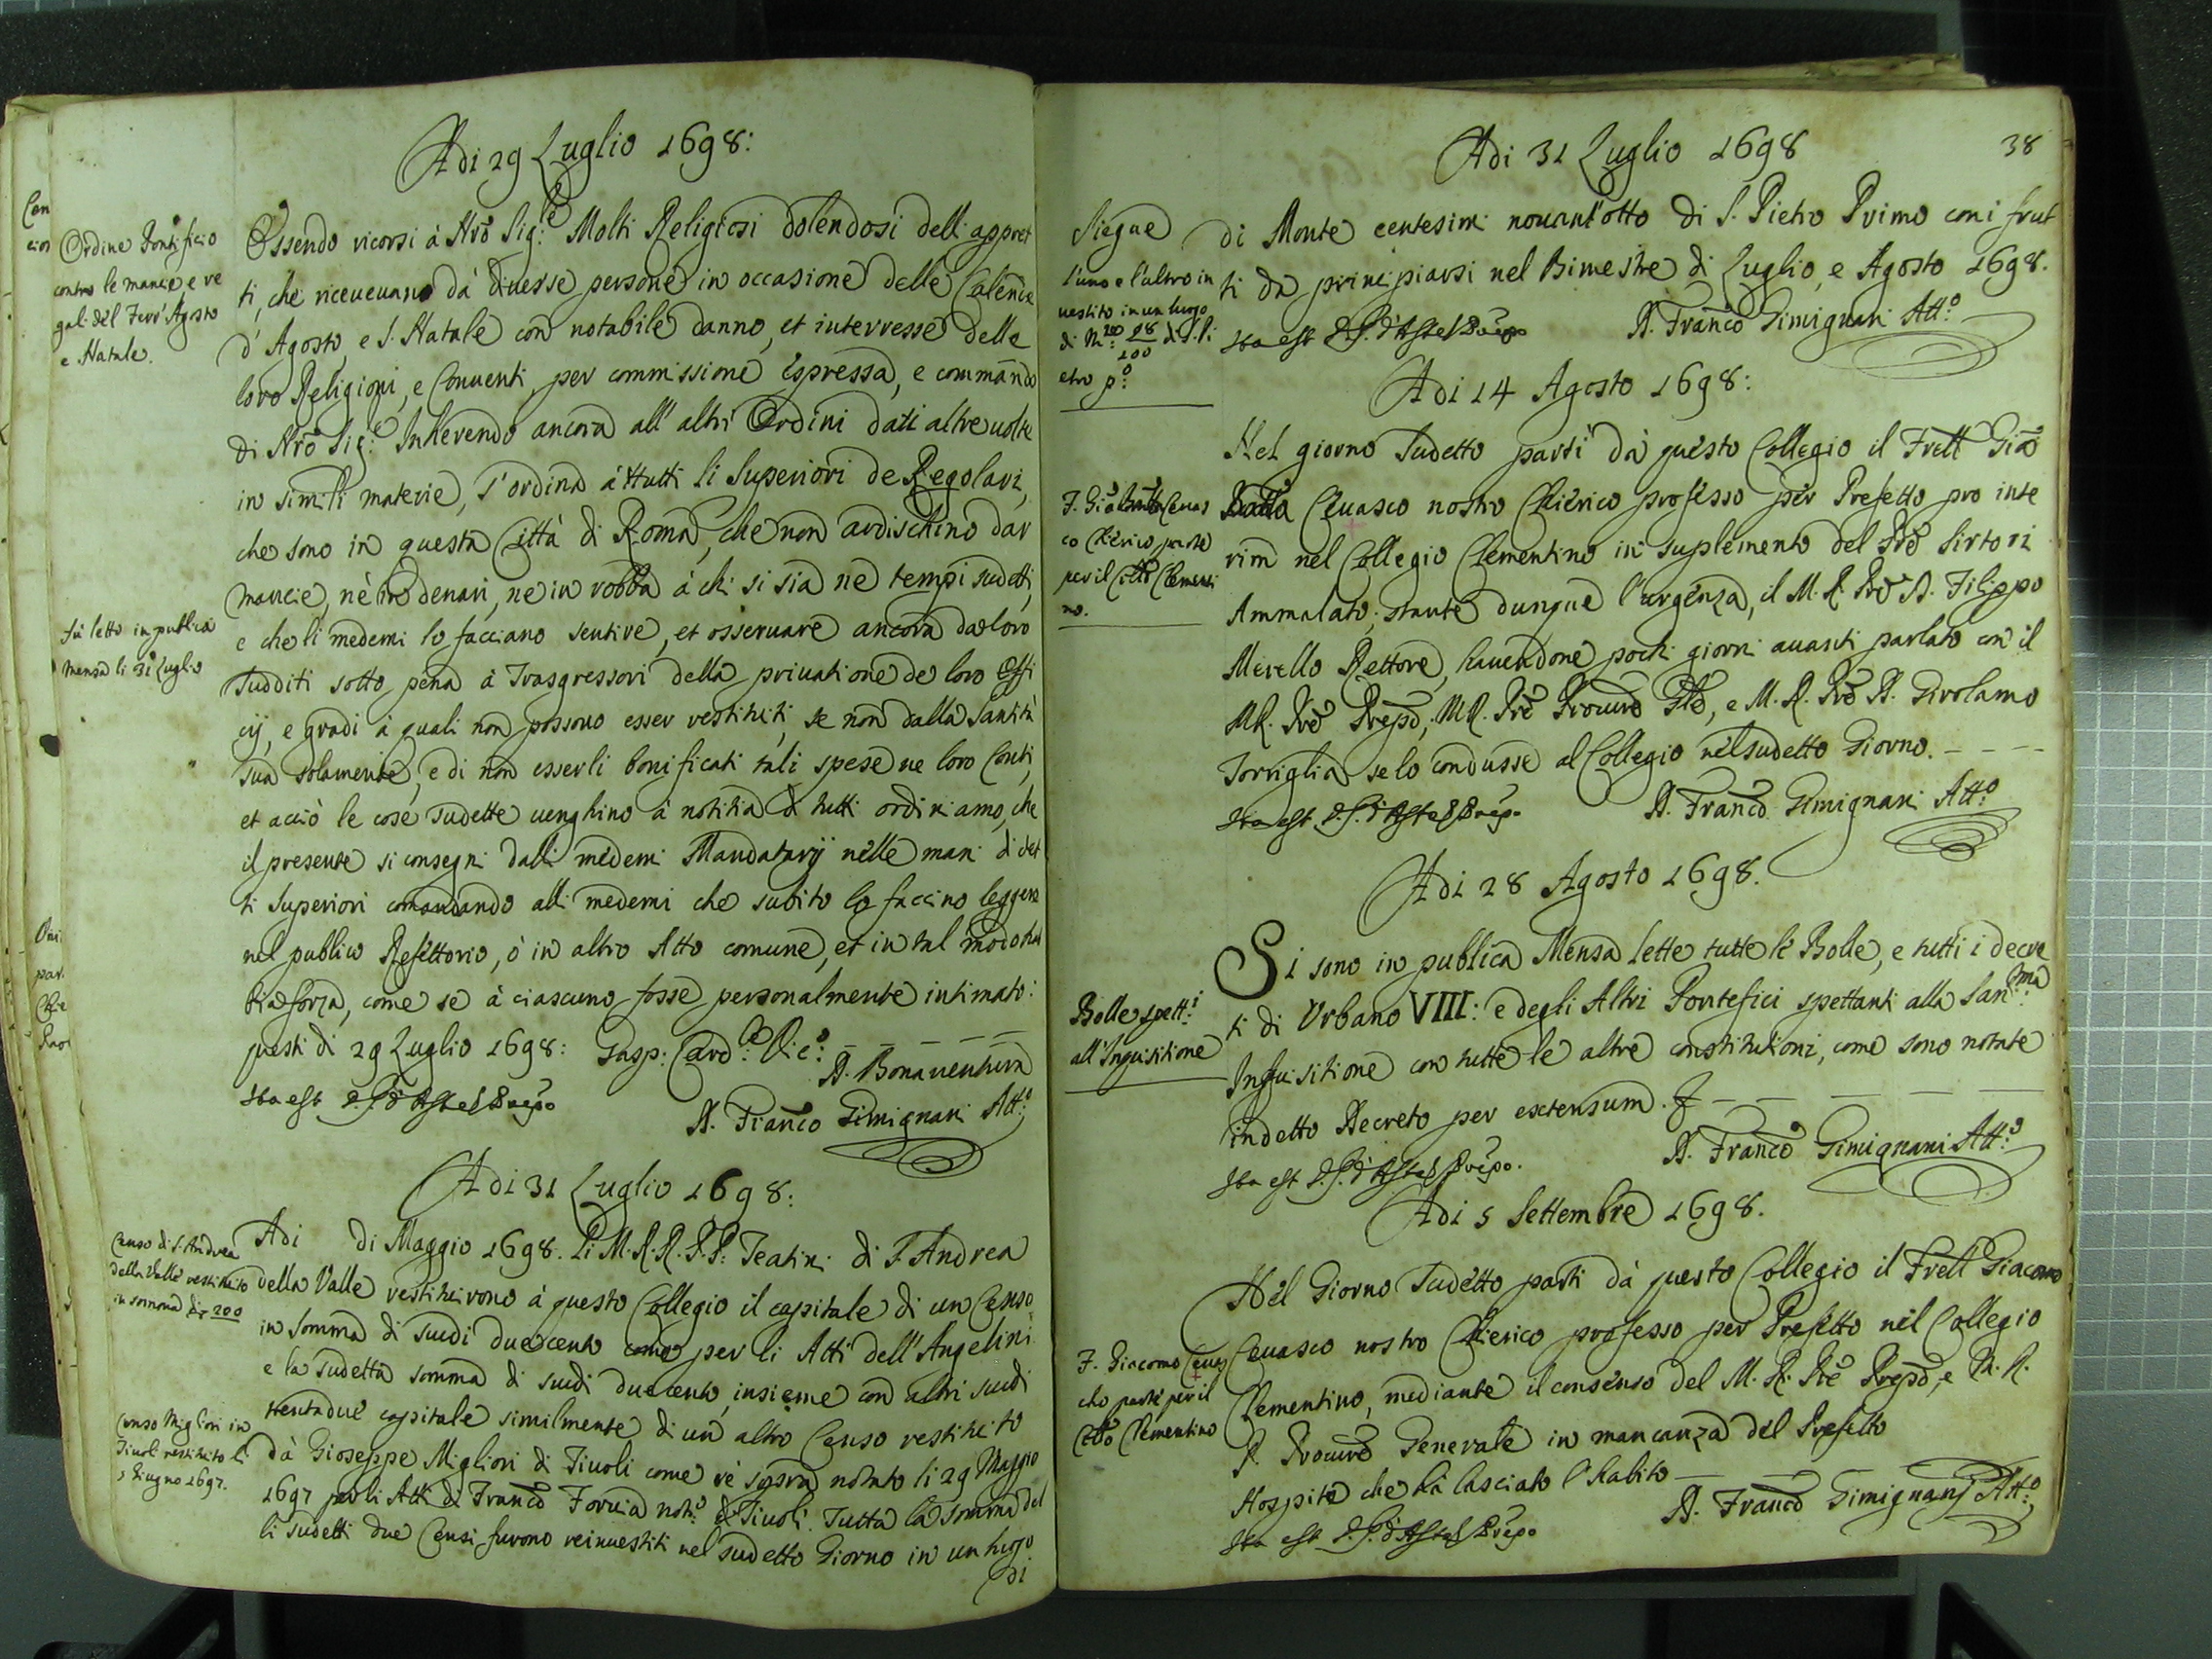 Adi 29 Luglio 1698:
Ordine Pontificio
contro le mancie e re
gali del Ferr'Agosto
e Natale.
Essendo ricorsi à Nrõ Sig:re Molti Religiosi dolendosi dell'appret
ti, che riceuevano dà diuerse persone in occasione delle Calende
d'Agosto, e S. Natale con notabile danno, et interresse delle
loro Religioni, e Conuenti, per commissione espressa, e commando
di Nrõ Sig:re Inherendo ancora all'altri Ordini dati altre uolte
in simili materie, s'ordina à ttutti li Superiori de Regolari,
che sono in questa Città di Roma, che non ardischino dar
mancie, nè in denari, ne in robba à chi si sia ne tempi sudetti,
fù letto in publica
mensa li 31 Luglio
e che li medemi lo facciano sentire, et osseruare ancora da loro
sudditi sotto pena à Trasgressori della priuatione de loro offi
cij, e gradi à quali non possono esser restituiti, se non dalla Santità
sua solamente, e di non esserli bonificati tali spese ne loro Conti,
et acciò le cose sudette uenghino à notitia di tutti ordiniamo, che
il presente si consegni dalli medemi Mandatarij nelle mani di det
ti Superiori comandando alli medemi che subito lo faccino leggere
nel publico Refettorio, ò in altro Atto comune, et in tal modo hab
bia forza, come se à ciascuno fosse personalmente intimato:
questi di 29 Luglio 1698: Gasp: Card:le Vic:o
D. Bonauentura
Ita est D. G. d'Aste Prepo
D. Franco Gimignani Att:o
Adi 31 Luglio 1698:
Censo di S. Andrea
della Valle restituito
in somma di 200
Adi di Maggio 1698. Li M.R.R. P.P. Teatini di S. Andrea
della Valle restituirono à questo Collegio il capitale di un Censo
in somma di scudi duecento come per li Atti dell'Angelini
e la sudetta somma di scudi duecento, insieme con altri scudi
trentadue capitale similmente di un altro Censo restituito
Censo Migliori in
Tiuoli restituito li
5 Giugno 1697.
dà Gioseppe Migliori di Tiuoli come s'è sopra notato li 29 Maggio
1697 per li Atti di Franco Forcia not:o di Tiuoli. Tutta la somma del
li sudetti due Censi furono reinuestiti nel sudetto Giorno in un luogo
di
38
Adi 31 Luglio 1698
Siegue
l'uno e l'altro in
uestito in un luogo
di M:te 98 di S. Pi
100
etro p:o
di Monte centesimi nouant'otto di S. Pietro Primo con i frut
ti da principiarsi nel Bimestre di Luglio, e Agosto 1698.
Ita est D. G. d'Aste Prepo
D. Franco Gimignani Att:o
Adi 14 Agosto 1698:
Nel giorno sudetto partì dà questo Collegio il Frell Gio
F. Gio Batta Ceuas
co Chierico parte
per il Collo Clementi
no.
Batta Ceuasco nostro Chierico professo per Prefetto pro inte
rim nel Collegio Clementino in suplemento del Prẽ Sirtori
Ammalato; stante dunque l'urgenza, il M. R. Prẽ D. Filippo
Merello Rettore, hauendone pochi giorni auanti parlato con il
MR. Prẽ Prepo, MR. Prẽ Procurẽ Gle, e M. R. Prẽ D. Girolamo
Torriglia se lo condusse al Collegio nel sudetto Giorno.
Ita est D. G. d'Aste Prepo
D. Franco Gimignani Att:o
Adi 28 Agosto 1698.
Bolle spett:i
all'Inquisitione
Si sono in publica Mensa lette tutte le Bolle, e tutti i decre
ti di Vrbano VIII: e degli Altri Pontefici spettanti alla San:ma
Inquisitione con tutte le altre constitutioni, come sono notate
in detto Decreto per extensum.
Ita est D. G. d'Aste Prepo.
D. Franco Gimignani Att:o
Adi 5 Settembre 1698.
Nel Giorno sudetto partì dà questo Collegio il Frell Giacomo
F. Giacomo Ceuas
cho parte per il
Collo Clementino
Ceuasco nostro Chierico professo per Prefetto nel Collegio
Clementino, mediante il consenso del M. R. Prẽ Prepo, e M. R.
P. Procurẽ Generale in mancanza del Prefetto
Hospite che hà lasciato l'habito
Ita est D. G. d'Aste Prepo
D. Franco Gimignanj Att:o